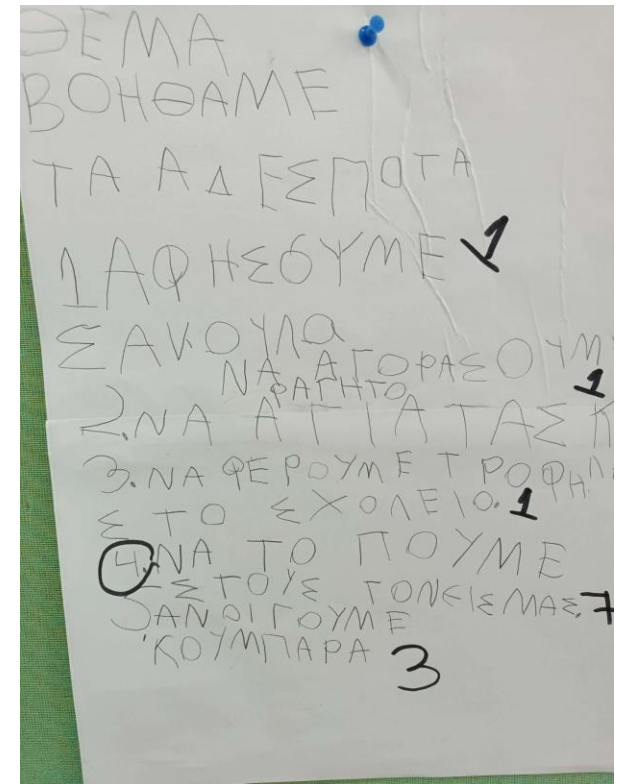 ΘΕΜΑ
ΒΟΗΘΑΜΕ
ΤΑ ΑΔΕΣΠΟΤΑ
1 ΑΦΗΣΟΥΜΕ 1
ΣΑΚΟΥΛΑ
ΝΑ ΑΓΟΡΑΣΟΥΜ
ΦΑΓΗΤΟ 1
2. ΝΑ ΑΓΙΑΤΑΣΚ
3. ΝΑ ΦΕΡΟΥΜΕ ΤΡΟΦΗ
ΣΤΟ ΣΧΟΛΕΙΟ. 1
4. ΝΑ ΤΟ ΠΟΥΜΕ
ΣΤΟΥΣ ΓΟΝΕΙΣ ΜΑΣ. 7
5 ΑΝΟΙΓΟΥΜΕ
ΚΟΥΜΠΑΡΑ 3